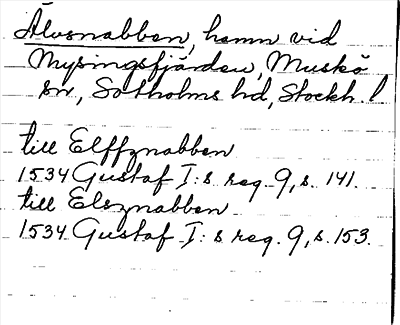 Älvsnabben, hamn vid
Mysingsfjärden, Muskö
sn, Sotholms hd, Stockh. l
till Elffznabben
1534 Gustaf I:s reg. 9, s. 141.
till Elsznabben
1534 Gustaf I:s reg. 9, s. 153.